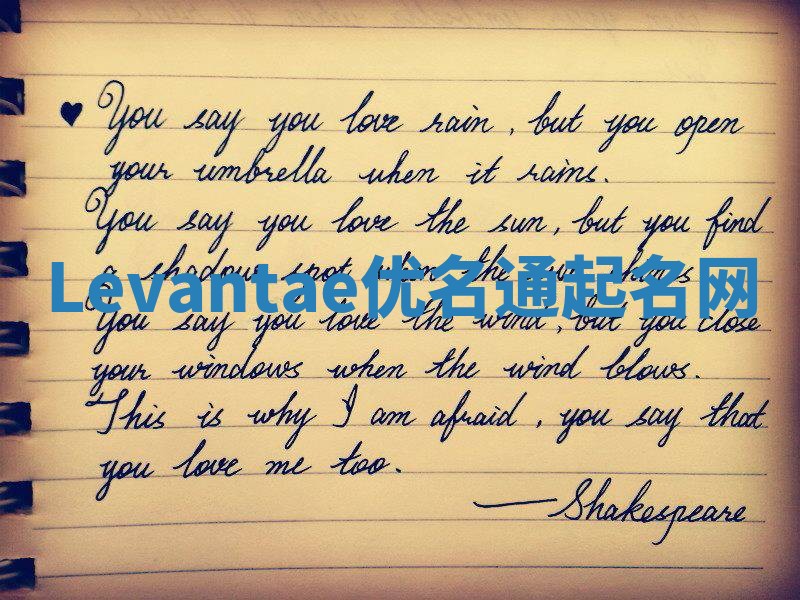 ♥ You say you love rain, but you open
your umbrella when it rains.
You say you love the sun, but you find
a shadow spot when the sun shines
Levantae优名通起名网
You say you love the wind, but you close
your windows when the wind blows.
This is why I am afraid, you say that
you love me too.
—Shakespeare